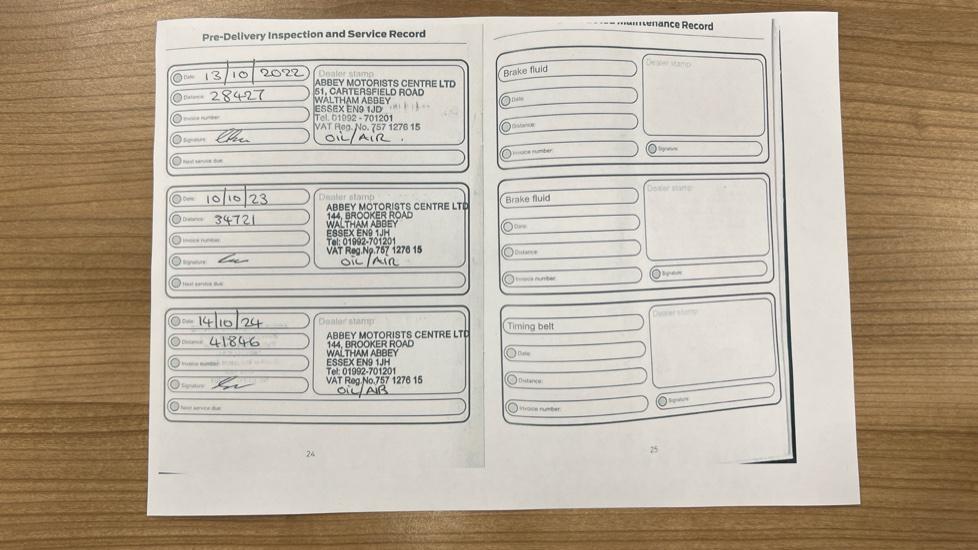 Pre-Delivery Inspection and Service Record
Date: 13/10/2022
Distance: 28427
Invoice number:
Signature:
Next service due:
Dealer stamp
ABBEY MOTORISTS CENTRE LTD
51, CARTERSFIELD ROAD
WALTHAM ABBEY
ESSEX EN9 1JD
Tel. 01992 - 701201
VAT Reg. No. 757 1276 15
OIL/AIR.
Date: 10/10/23
Distance: 34721
Invoice number:
Signature:
Next service due:
Dealer stamp
ABBEY MOTORISTS CENTRE LTD
144, BROOKER ROAD
WALTHAM ABBEY
ESSEX EN9 1JH
Tel: 01992-701201
VAT Reg.No.757 1276 15
OIL/AIR
Date: 14/10/24
Distance: 41846
Invoice number:
Signature:
Next service due:
Dealer stamp
ABBEY MOTORISTS CENTRE LTD
144, BROOKER ROAD
WALTHAM ABBEY
ESSEX EN9 1JH
Tel: 01992-701201
VAT Reg.No.757 1276 15
OIL/AIR
24
Maintenance Record
Brake fluid
Date:
Distance:
Invoice number:
Dealer stamp
Signature:
Brake fluid
Date:
Distance:
Invoice number:
Dealer stamp
Signature:
Timing belt
Date:
Distance:
Invoice number:
Dealer stamp
Signature:
25